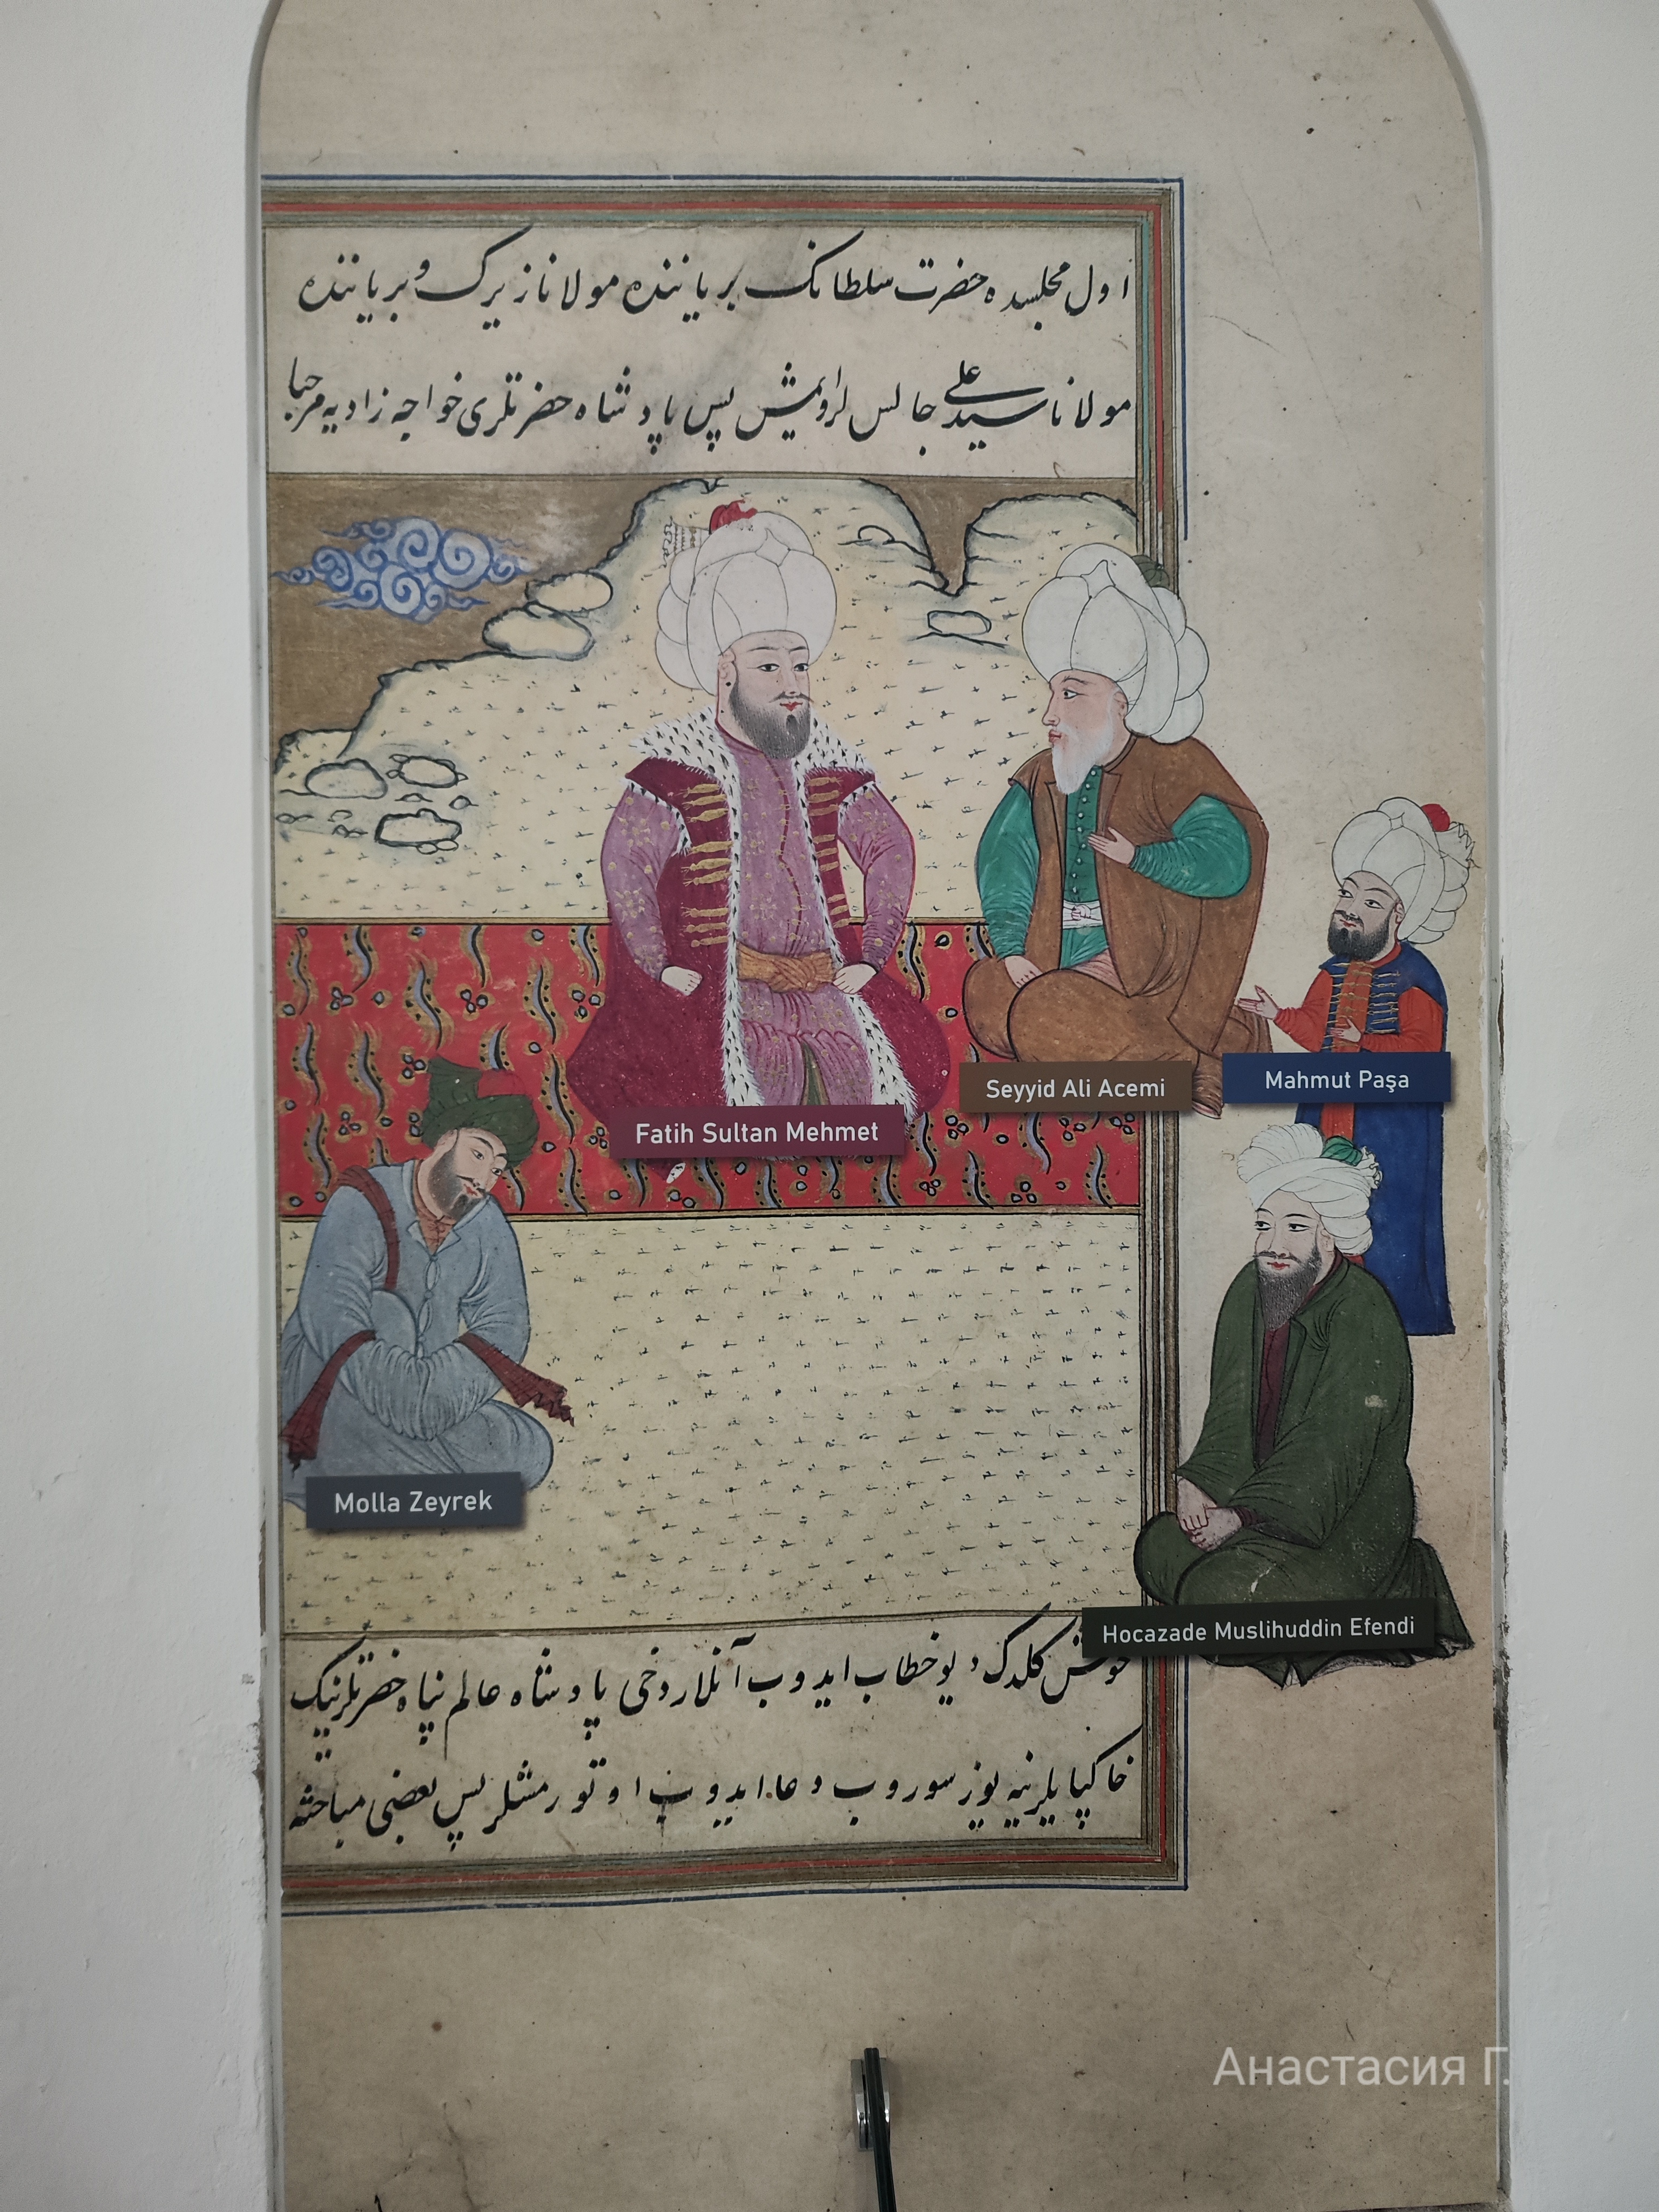 اول مجلسده حضرت سلطانک بر یاننده مولانا زیرک و بر یاننده
مولانا سید علی جالس لرایمش پس پادشاه حضرتلری خواجه زادیه مرحبا
Fatih Sultan Mehmet
Seyyid Ali Acemi
Mahmut Paşa
Molla Zeyrek
Hocazade Muslihuddin Efendi
خوش کلدک دیو خطاب ایدوب آنلار دخی پادشاه عالم پناه حضرتلرینک
خاکپایلرینه یوز سوروب دعا ایدوب اوتورمشلر پس بعضی مباحثه
Анастасия Г.